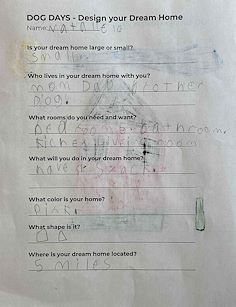 DOG DAYS - Design your Dream Home
Name: Natalie
Is your dream home large or small?
Small
Who lives in your dream home with you?
mom Dad brother
Dog.
What rooms do you need and want?
bedrooms bathroom
kichen living room
What will you do in your dream home?
have
What color is your home?
Pink
What shape is it?
Where is your dream home located?
5 miles